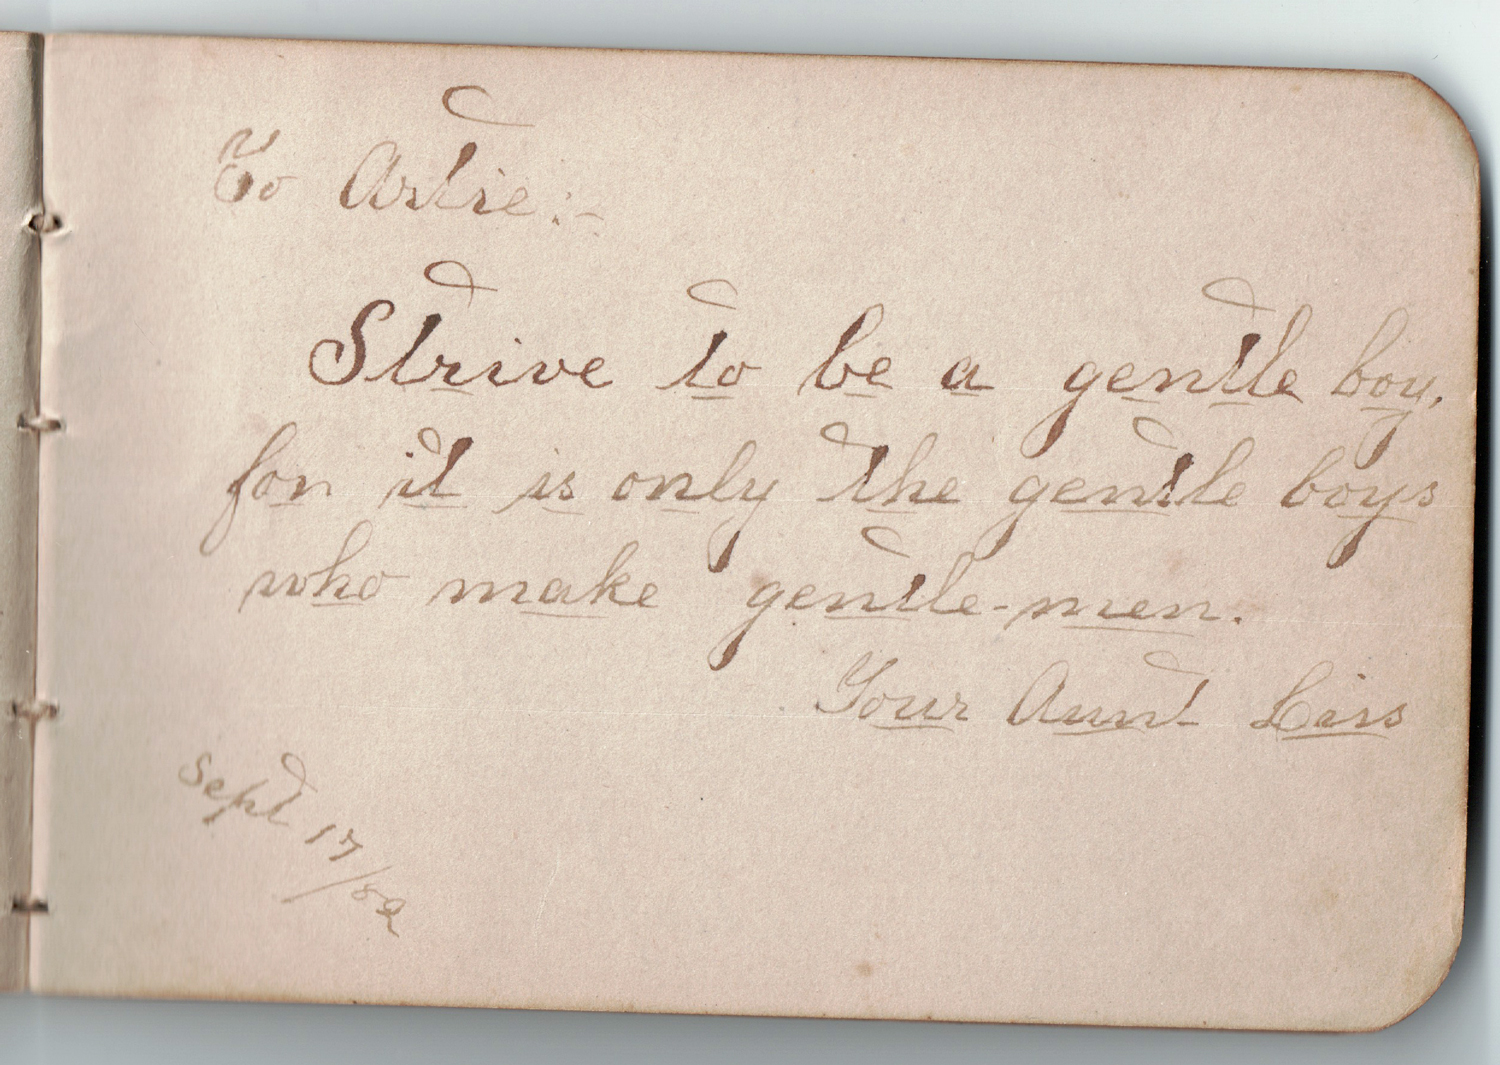 To Artie:-
Strive to be a gentle boy,
for it is only the gentle boys
who make gentle-men.
Your Aunt Liss
Sept 17/82